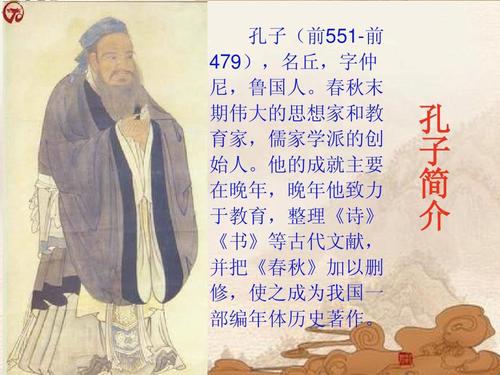 孔子（前551-前
479），名丘，字仲
尼，鲁国人。春秋末
期伟大的思想家和教
育家，儒家学派的创
始人。他的成就主要
在晚年，晚年他致力
于教育，整理《诗》
《书》等古代文献，
并把《春秋》加以删
修，使之成为我国一
部编年体历史著作。
孔子简介